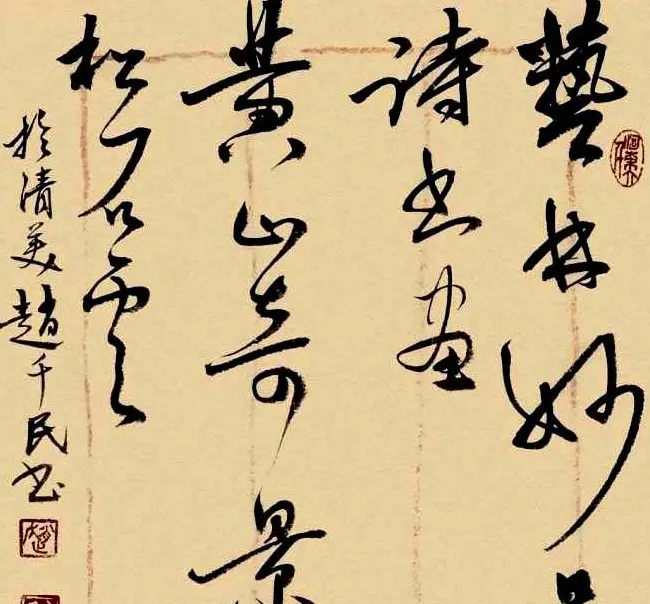 藝林妙
詩书画
黄山奇景
松石雲
於清美趙千民书